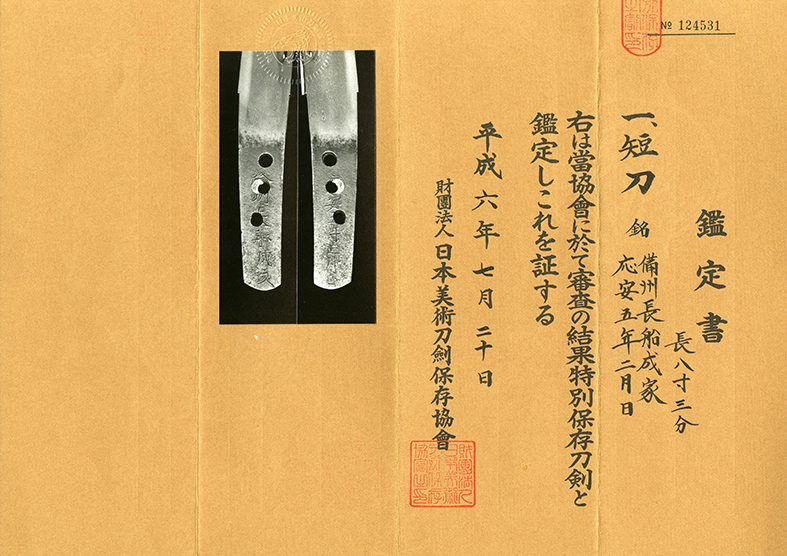 № 124531
鑑定書
一、短刀 銘 備州長船成家
応安五年二月日
長八寸三分
右は當協會に於て審査の結果特別保存刀剣と
鑑定しこれを証する
平成六年七月二十日
財團法人日本美術刀劍保存協會